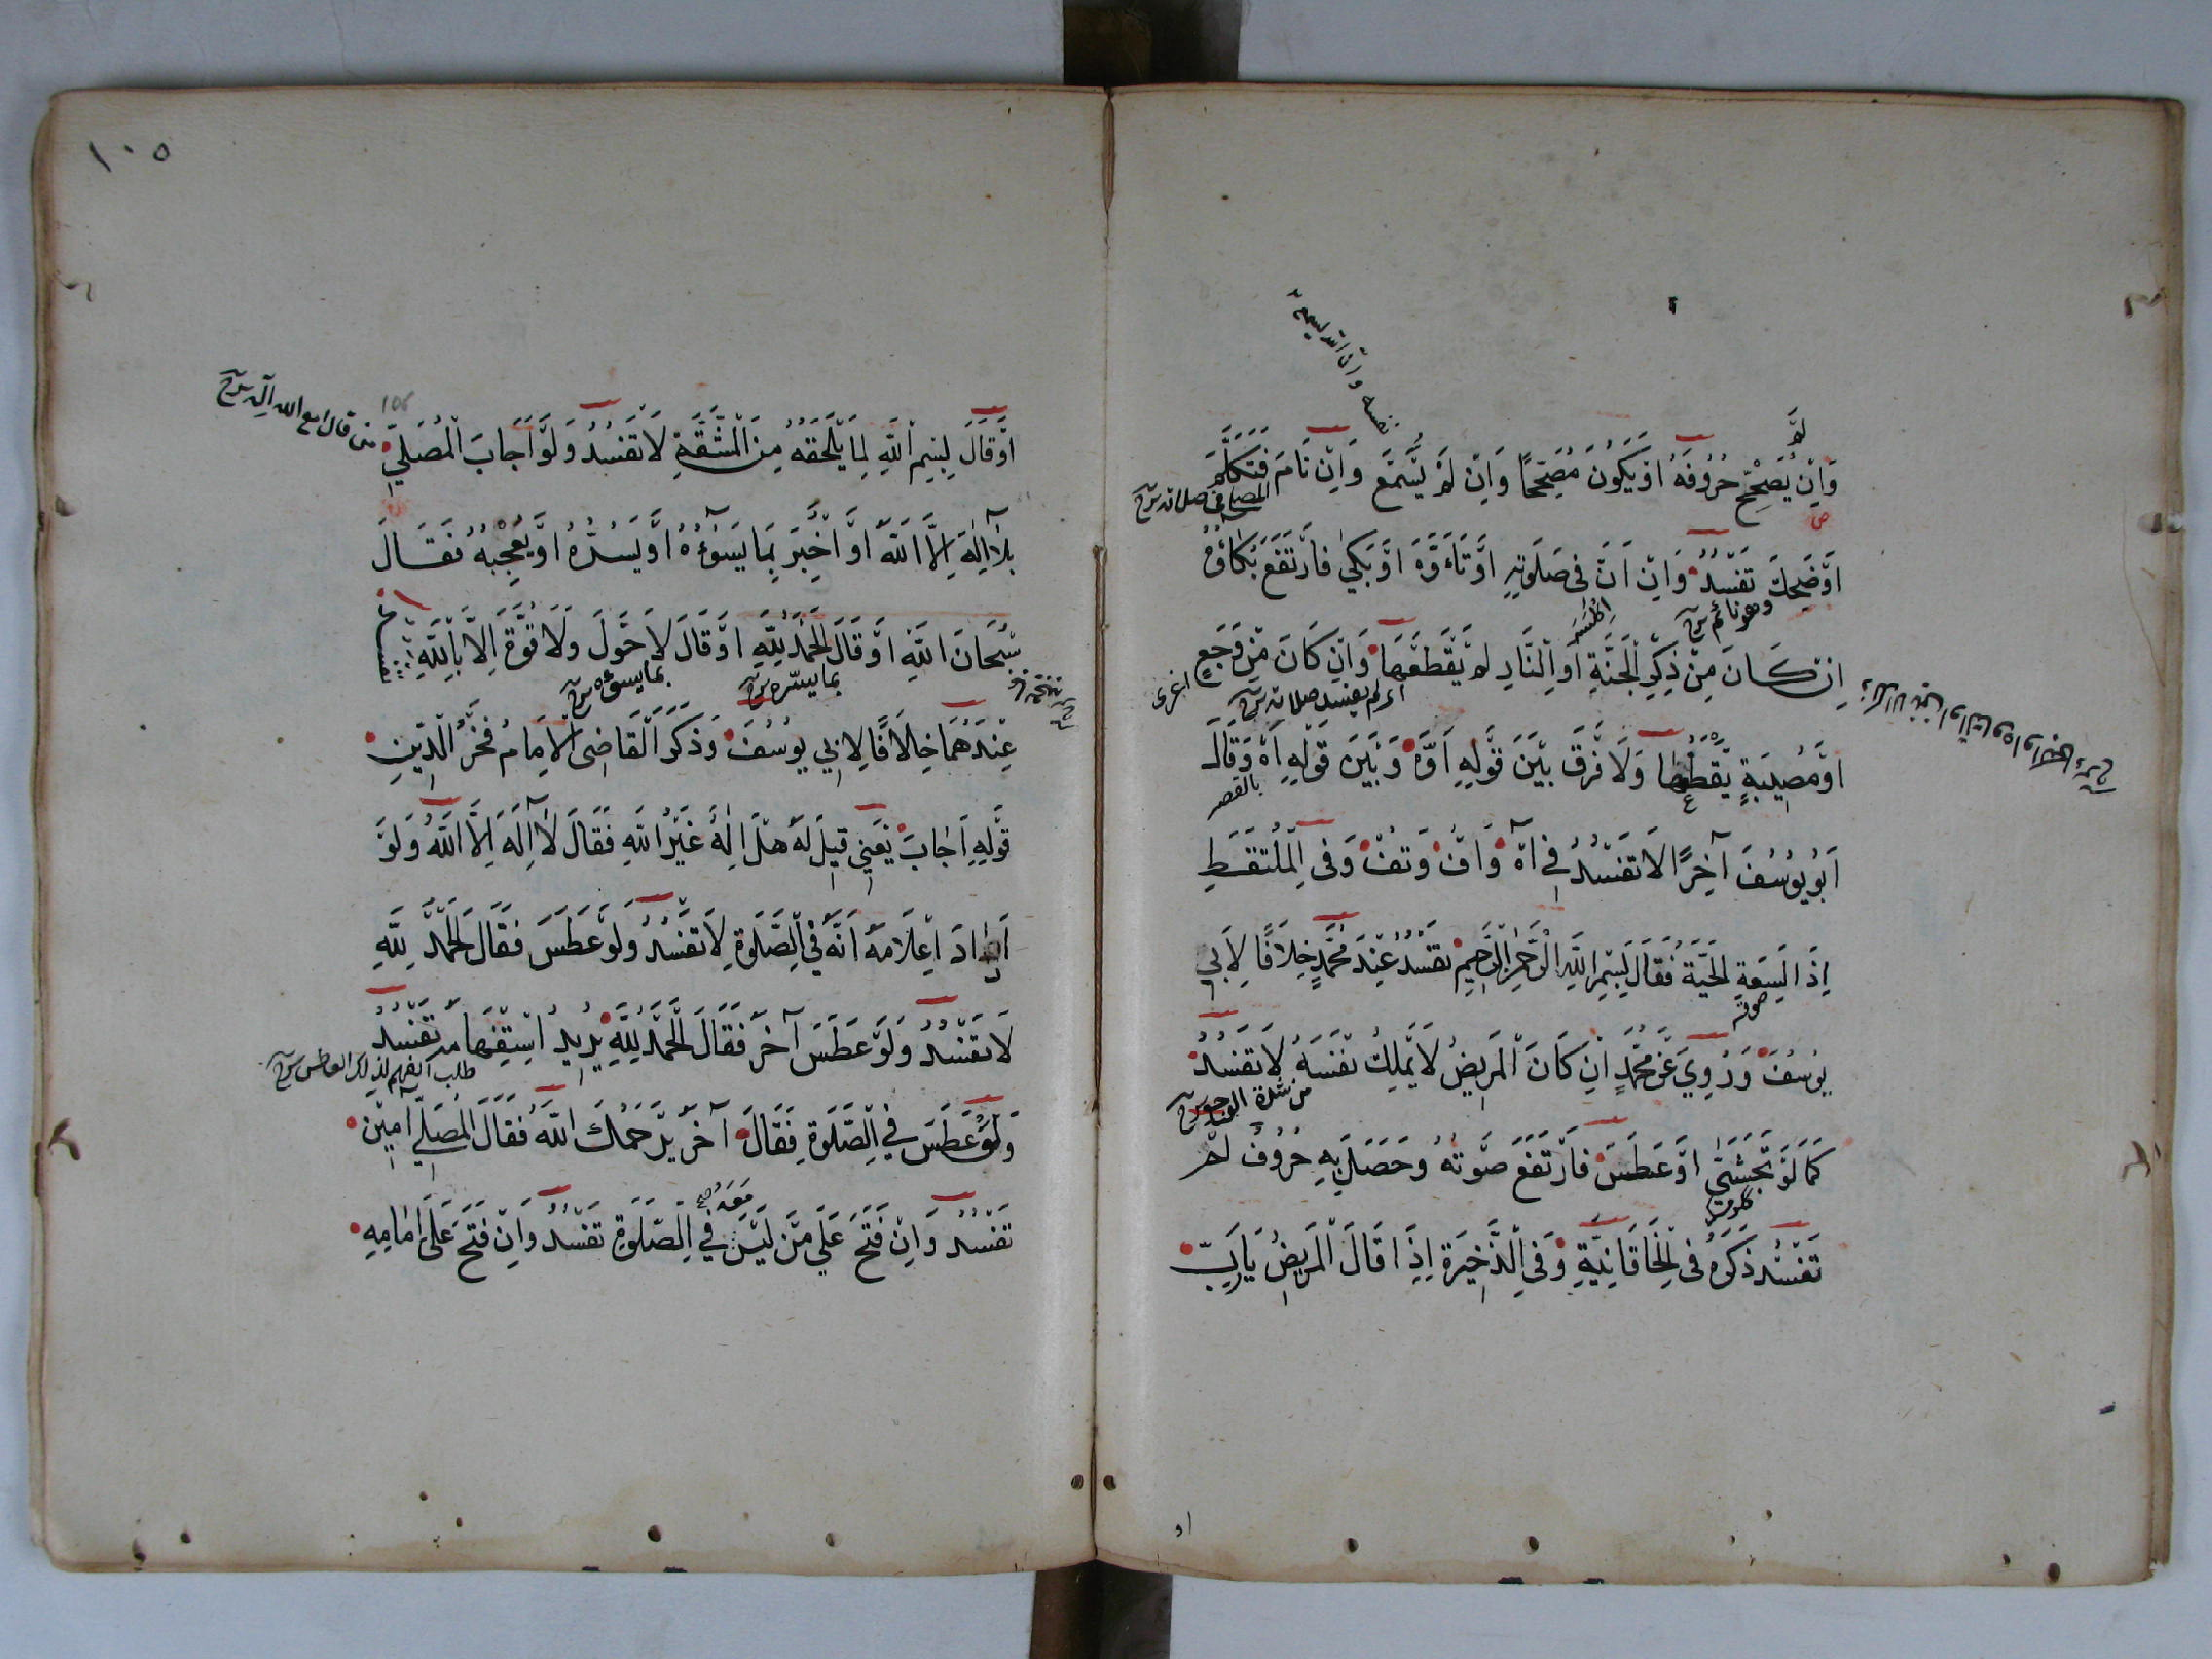 وَاِنْ لَمْ يُصَحِّحْ حُرُوفَهُ اَوْ يَكُونَ مُصَحِّحًا وَاِنْ لَمْ يُسْمَعْ وَاِنْ نَامَ فَتَكَلَّمَ
المصلى فى صلاته شرح
اَوْ ضَحِكَ تَفْسُدُ وَاِنْ اَنَّ فِى صَلَوتِهِ اَوْ تَاَوَّهَ اَوْ بَكَىٰ فَارْتَفَعَ بُكَاؤُهُ
وهو نائم شرح
اِنْ كَانَ مِنْ ذِكْرِ الْجَنَّةِ اَوِ النَّارِ لَمْ يَقْطَعْهَا وَاِنْ كَانَ مِنْ وَجَعٍ
اى لم يفسد صلاته شرح
اَوْ مُصِيبَةٍ يَقْطَعُهَا وَلَا فَرْقَ بَيْنَ قَوْلِهِ اَوَّهْ وَبَيْنَ قَوْلِهِ اَهْ وَقَالَ
بالقصر
اَبُو يُوسُفَ آخِرًا لَا تَفْسُدُ فِي آهْ وَاُفْ وَتُفْ وَفِى الْمُلْتَقَطِ
اِذَا لَسِعَهُ الْحَيَّةُ فَقَالَ بِسْمِ اللّٰهِ الرَّحْمٰنِ الرَّحِيمِ تَفْسُدُ عِنْدَ مُحَمَّدٍ خِلَافًا لِاَبِي
يُوسُفَ وَرُوِيَ عَنْ مُحَمَّدٍ اِنْ كَانَ الْمَرِيضُ لَا يَمْلِكُ نَفْسَهُ لَا تَفْسُدُ
من شدة الوجع شرح
كَمَا لَوْ تَجَشَّى اَوْ عَطَسَ فَارْتَفَعَ صَوْتُهُ وَحَصَلَ بِهِ حُرُوفٌ لَمْ
تَفْسُدْ ذَكَرَهُ فِى الْخَاقَانِيَّةِ وَفِى الذَّخِيرَةِ اِذَا قَالَ الْمَرِيضُ يَا رَبِّ
او
١٠٥
اَوْ قَالَ بِسْمِ اللّٰهِ لِمَا يَلْحَقُهُ مِنَ الْمَشَقَّةِ لَا تَفْسُدُ وَلَوْ اَجَابَ الْمُصَلِّي
بِلَا اِلٰهَ اِلَّا اللّٰهُ اَوْ اُخْبِرَ بِمَا يَسُوءُهُ اَوْ يَسُرُّهُ اَوْ يُعْجِبُهُ فَقَالَ
سُبْحَانَ اللّٰهِ اَوْ قَالَ الْحَمْدُ لِلّٰهِ اَوْ قَالَ لَا حَوْلَ وَلَا قُوَّةَ اِلَّا بِاللّٰهِ
بما يسرّه شرح
بما يسوءه شرح
عِنْدَهُمَا خِلَافًا لِاَبِي يُوسُفَ وَذَكَرَ الْقَاضِى الْاِمَامُ فَخْرُ الدِّينِ
قَوْلِهِ اَجَابَ يَعْنِي قِيلَ لَهُ هَلْ اِلٰهٌ غَيْرُ اللّٰهِ فَقَالَ لَا اِلٰهَ اِلَّا اللّٰهُ وَلَوْ
اَرَادَ اِعْلَامَهُ اَنَّهُ فِي الصَّلَوةِ لَا تَفْسُدُ وَلَوْ عَطَسَ فَقَالَ الْحَمْدُ لِلّٰهِ
لَا تَفْسُدُ وَلَوْ عَطَسَ آخَرُ فَقَالَ الْحَمْدُ لِلّٰهِ يُرِيدُ اسْتِفْهَامَهُ تَفْسُدُ
وَلَوْ عَطَسَ فِي الصَّلَوةِ فَقَالَ آخَرُ يَرْحَمُكَ اللّٰهُ فَقَالَ الْمُصَلِّي آمِينَ
تَفْسُدُ وَاِنْ فَتَحَ عَلَى مَنْ لَيْسَ مَعَهُ فِي الصَّلَوةِ تَفْسُدُ وَاِنْ فَتَحَ عَلَى اِمَامِهِ